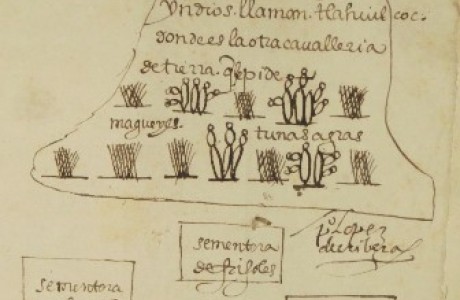 yndios. llaman. tlahuilcoc.
donde es la otra cavalleria
de tierra. q̃ pide
magueyes.
tunas agras
po Lopez
de Ribera
sementera
de frisoles
sementera